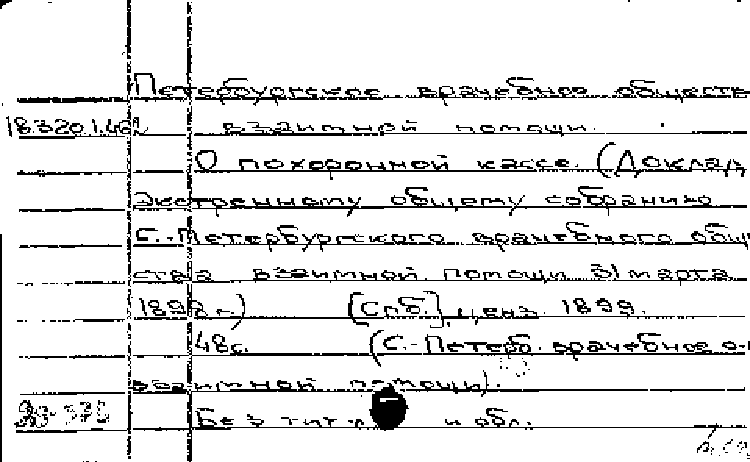 Петербургское врачебное обществ
18.320.1.462 взаимной помощи.
О похоронной кассе. (Доклад
экстренному общему собранию
С.-Петербургского врачебного общ
ства взаимной помощи 31 марта
1899 г.) [Спб.], ценз. 1899.
48с. (С.-Петерб. врачебное о-
взаимной помощи).
Без тит. и обл.